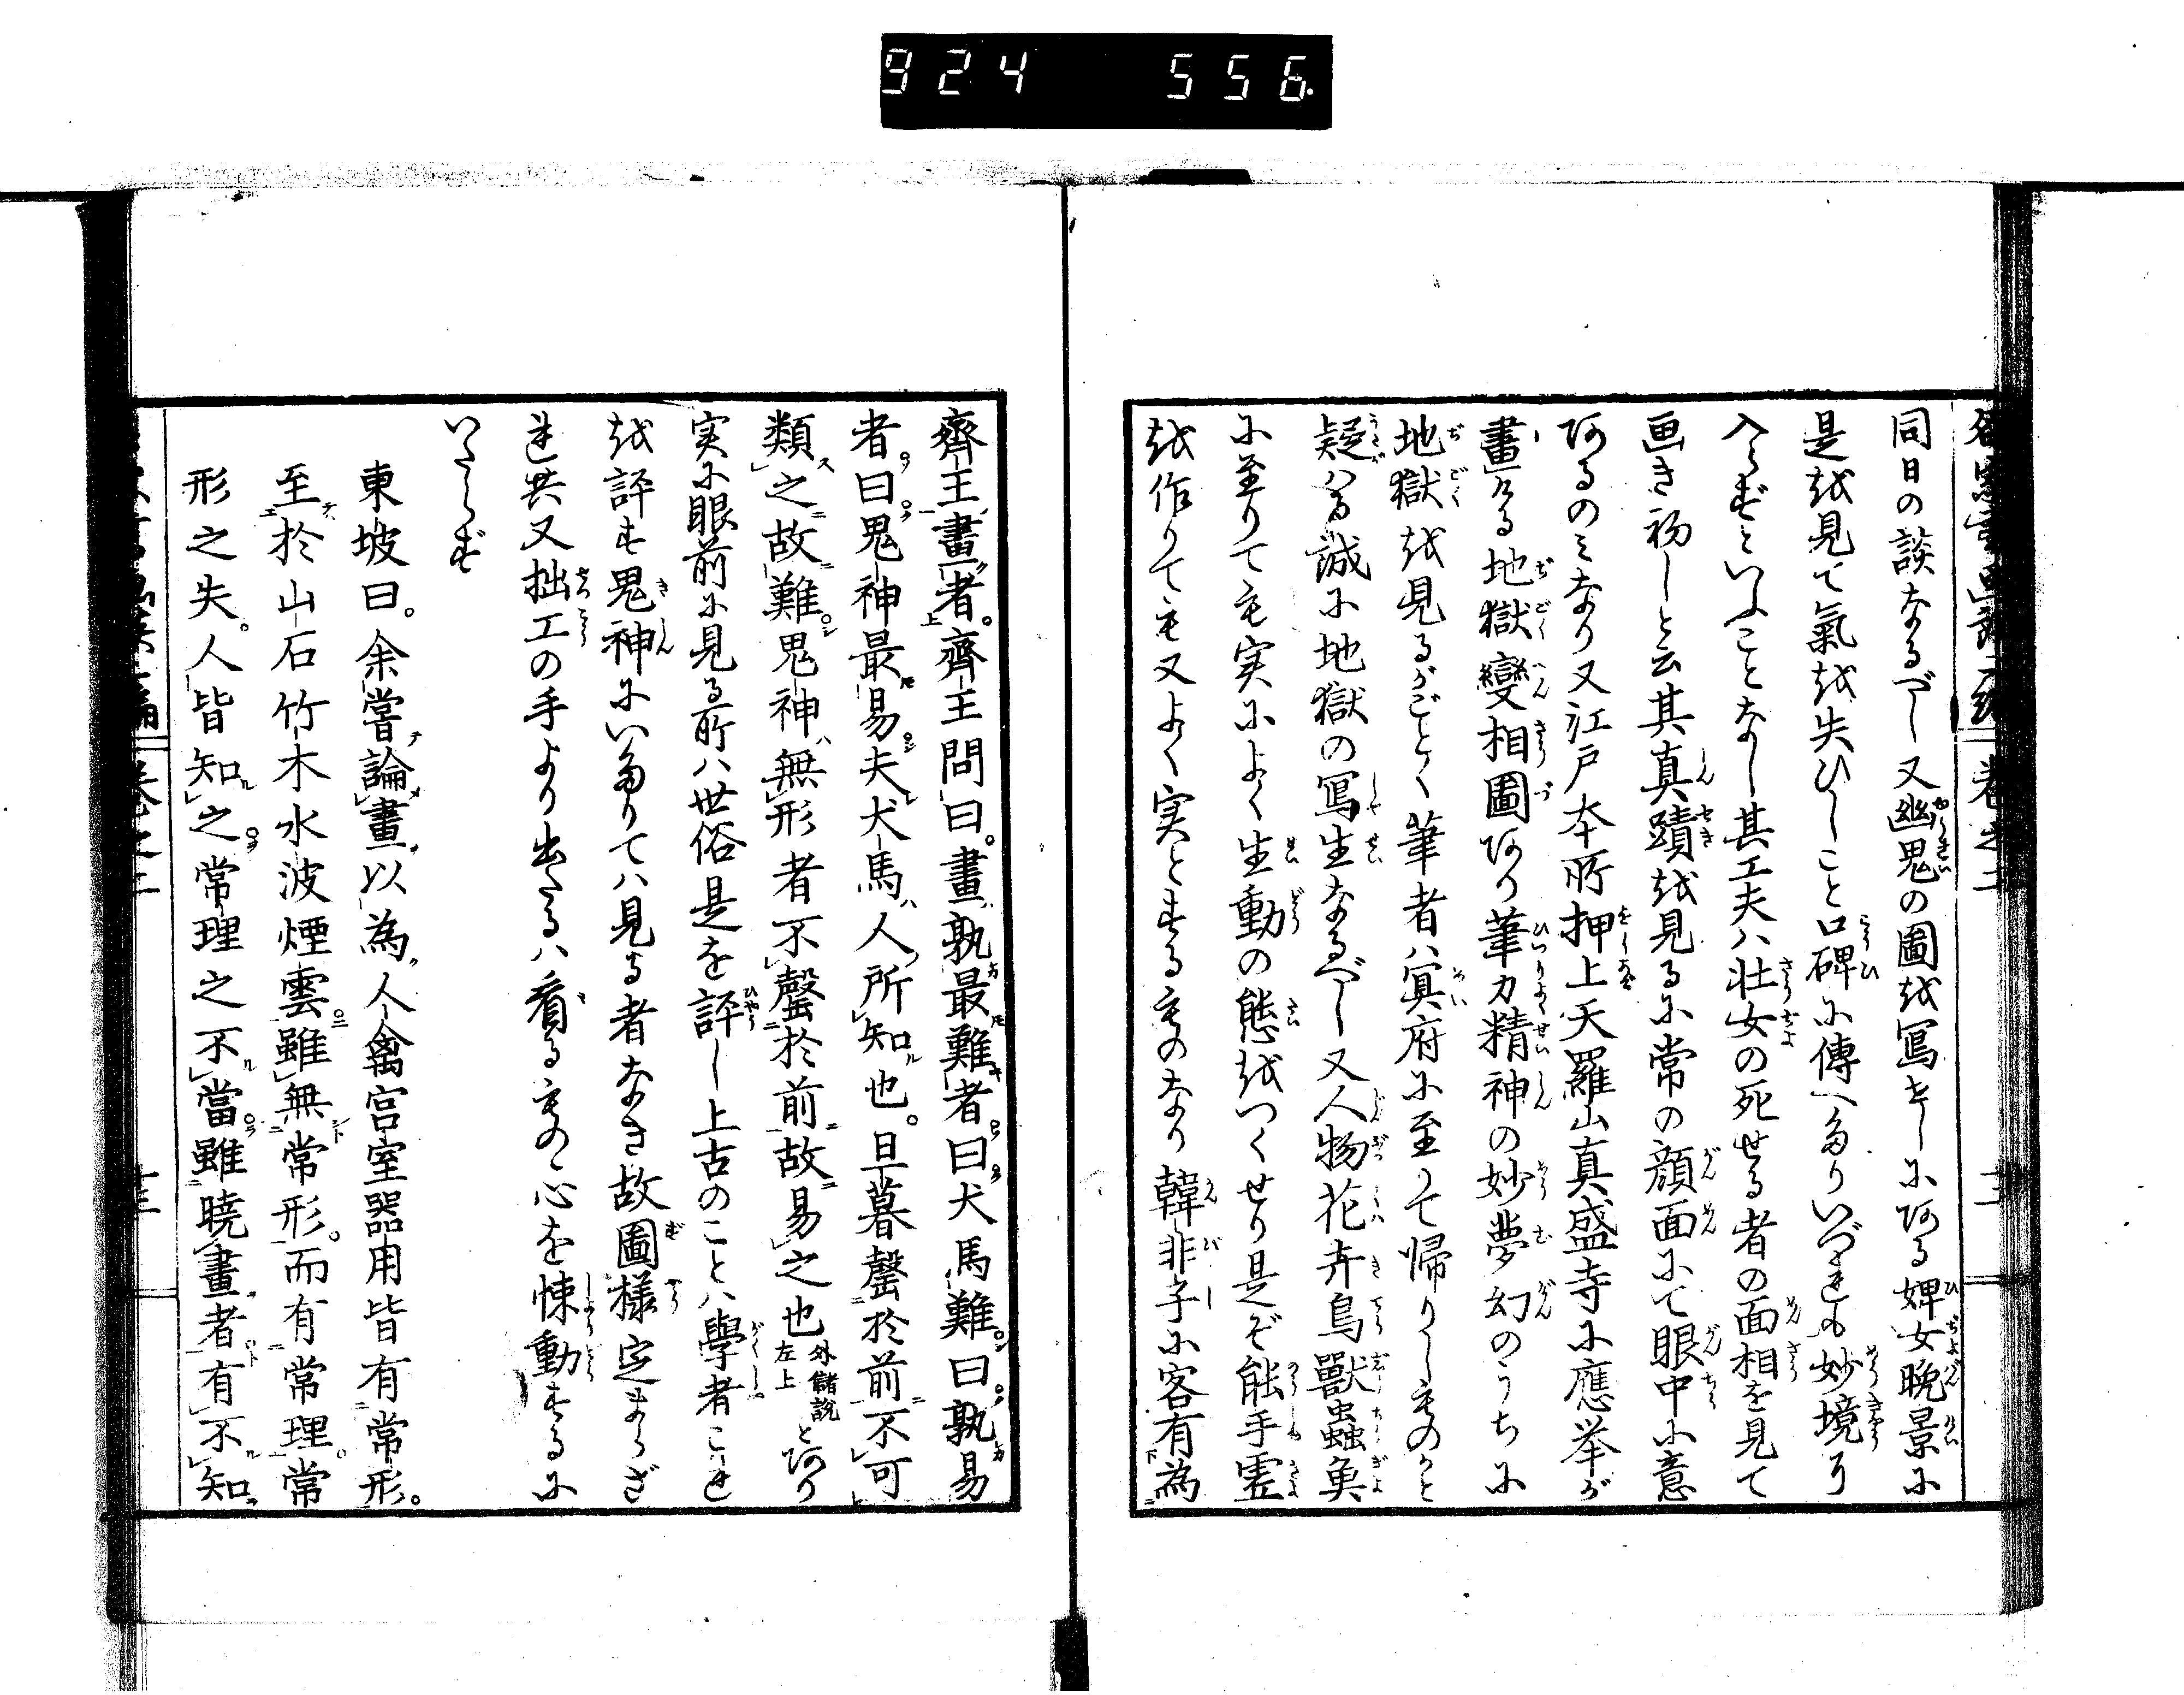 924 556
同日の談なるべし又幽鬼の圖越寫せしにある婢女晩景に
是越見て氣越失ひしこと口碑に傳へありいづれも妙境に
入らずといふことなし其工夫は壮女の死せる者の面相を見て
画き初しと云其真蹟越見るに常の顔面にて眼中に意
あるのミなり又江戸本所押上天羅山真盛寺に應挙が
畫ける地獄變相圖あり筆力精神の妙夢幻のうちに
地獄越見るがごとく筆者は冥府に至りて帰りしものかと
疑はる誠に地獄の寫生なるべし又人物花卉鳥獸蟲魚
に至りても実によく生動の態越つくせり是ぞ能手虚
越作りても又よく実とするものなり韓非子に客有為
齊王畫者。齊王問曰。畫孰最難者曰犬馬難。曰孰易
者曰鬼神最易夫犬馬人所知也。旦暮罄於前不可
類之故難鬼神無形者不罄於前故易之也外儲説左上とあり
実に眼前に見る所は世俗是を評し上古のことは學者これ
越評す鬼神にいたりては見る者なき故圖様定まらざ
れ共又拙工の手より出たるは看るものゝ心を悚動するに
いたらず
東坡曰。余嘗論畫以為人禽宮室器用皆有常形。
至於山石竹木水波煙雲雖無常形。而有常理。常
形之失。人皆知之常理之不當雖曉畫者有不知